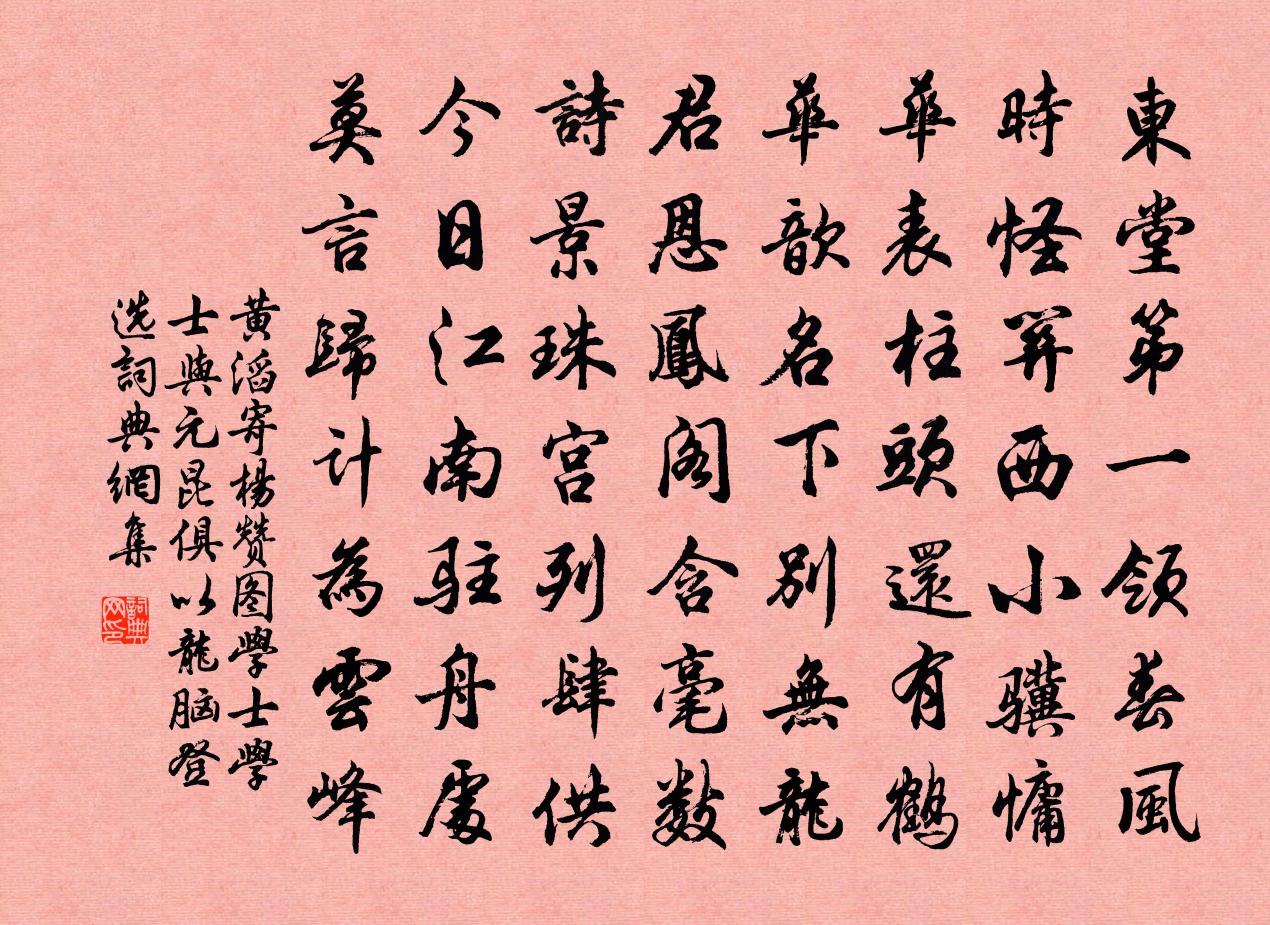 東堂第一領春風
時怪關西小驥慵
華表柱頭還有鶴
華歆名下別無龍
君恩鳳閣含毫數
詩景珠宮列肆供
今日江南駐舟處
莫言歸計為雲峰
黄滔寄楊赞图學士學
士與元昆俱以龍脑登
选詞典網集
詞典网印